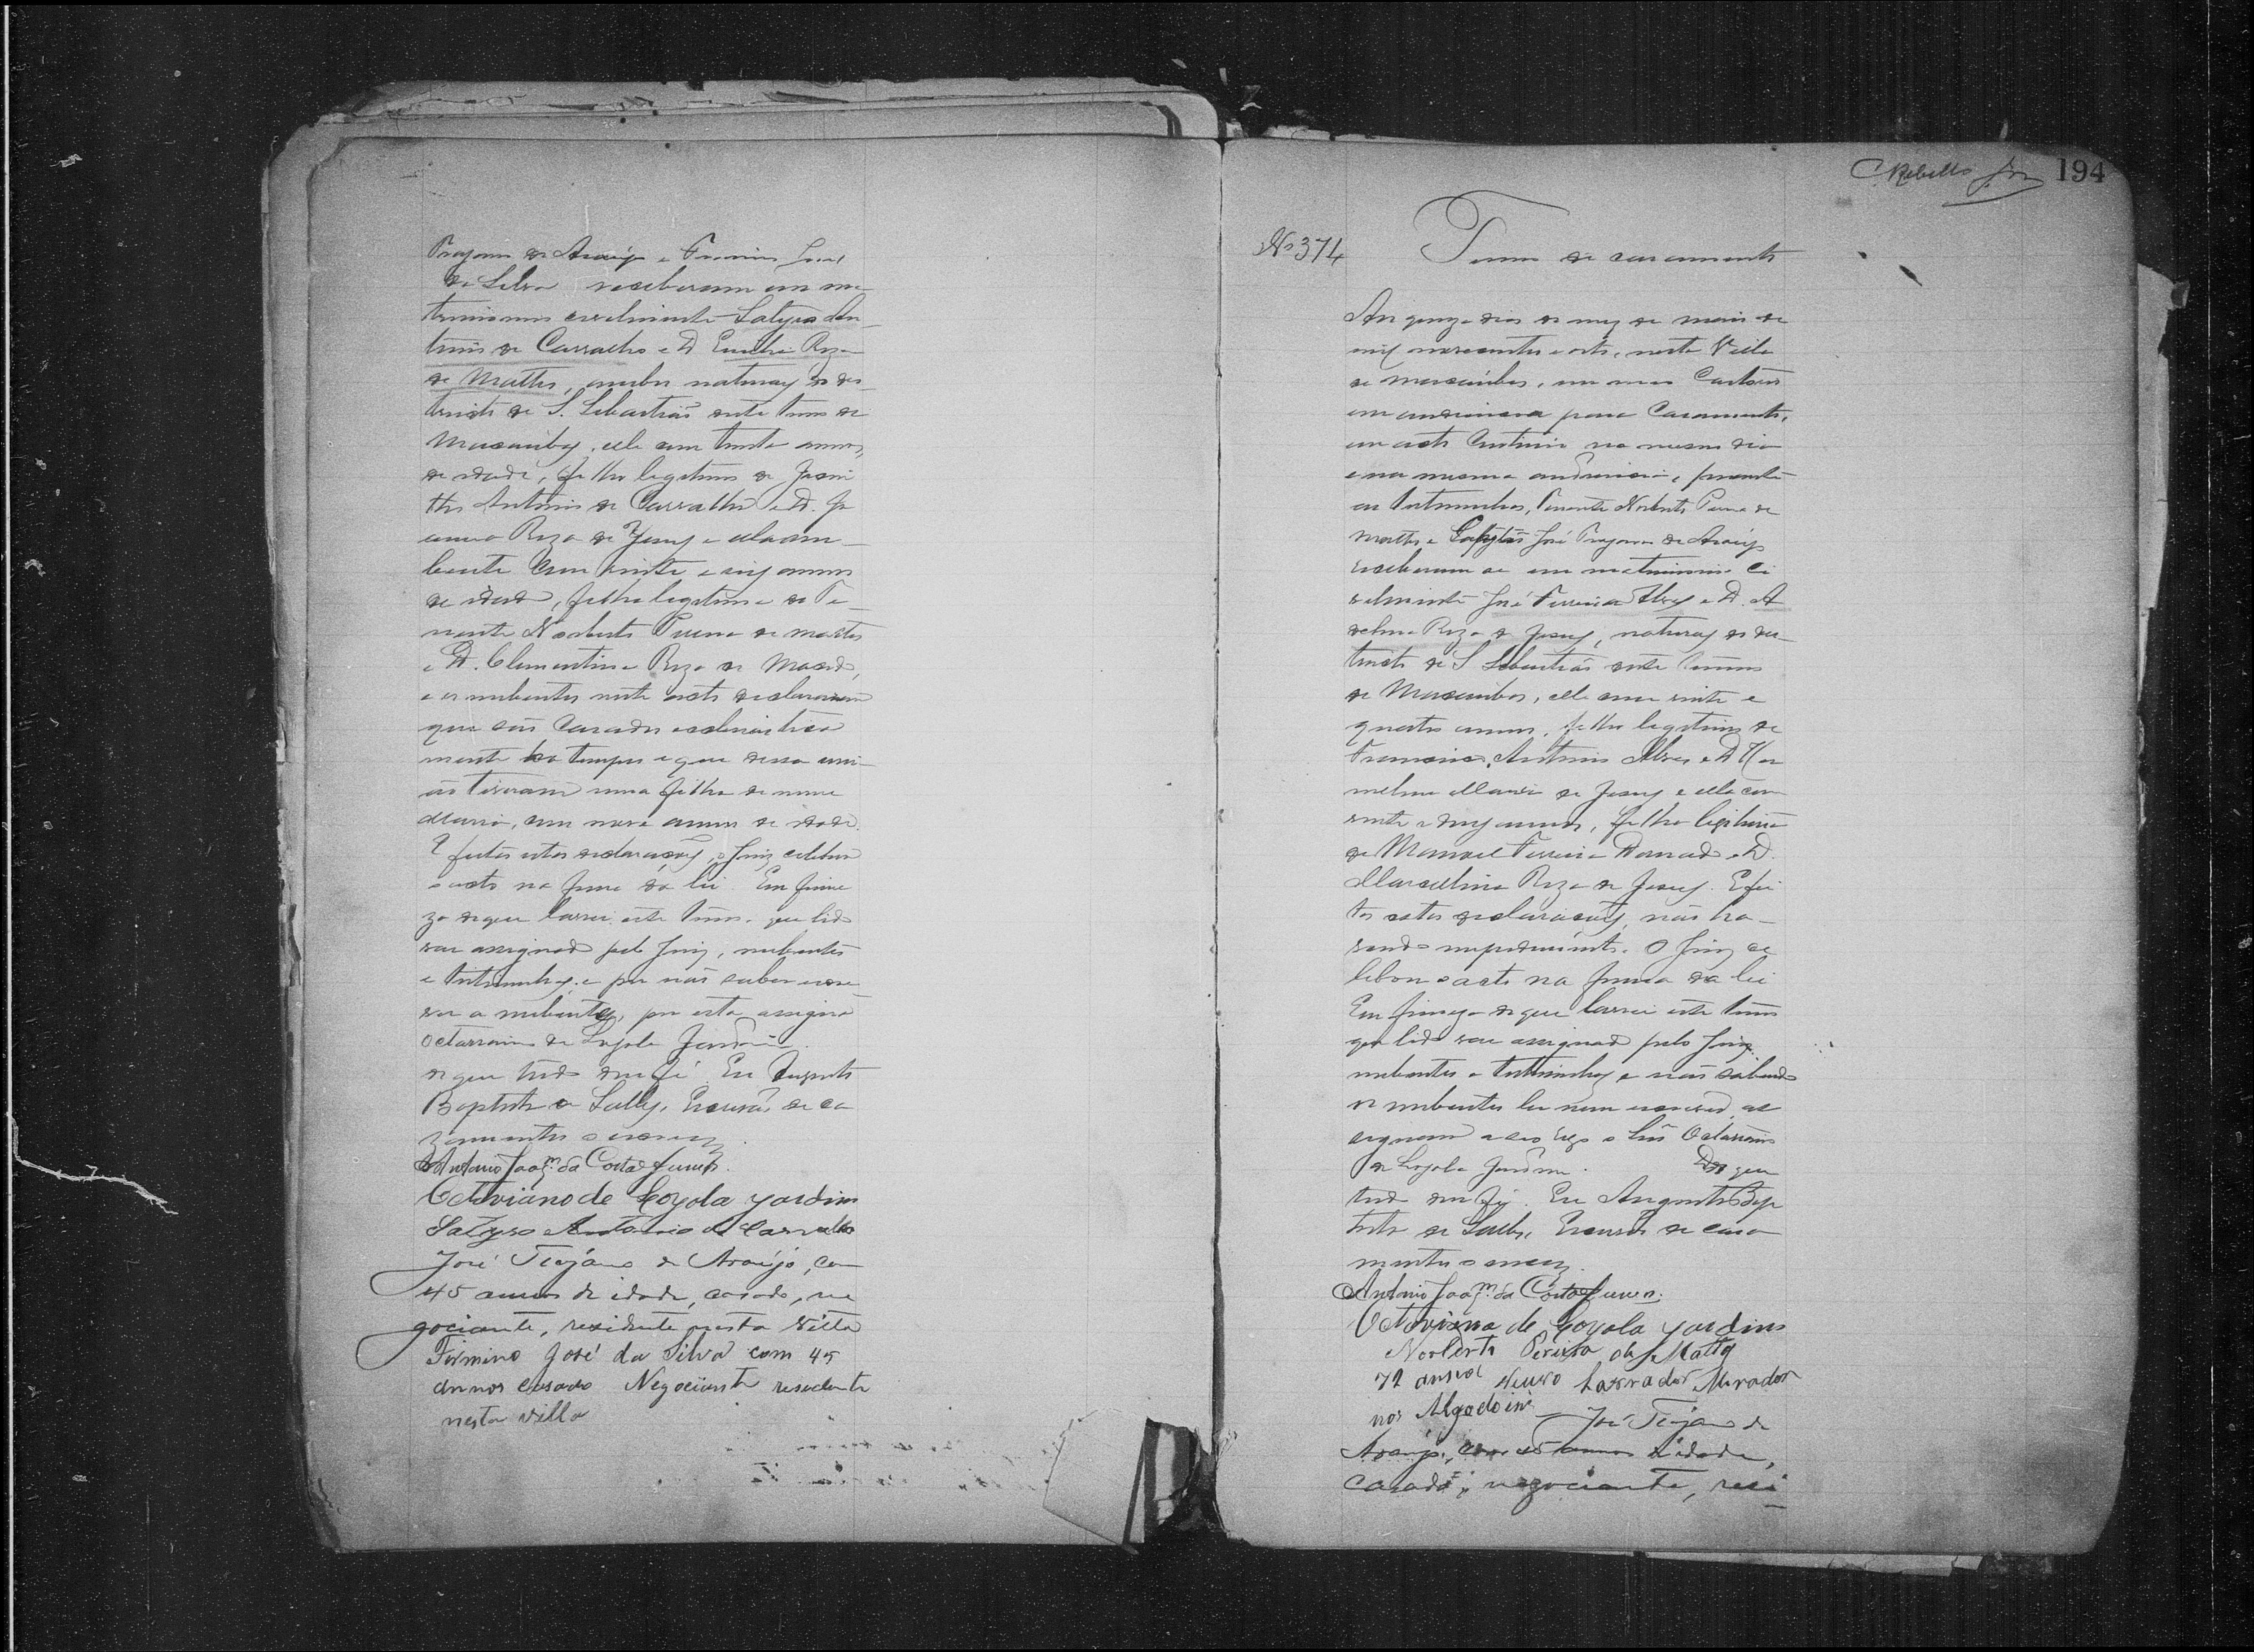 Trajano de Araujo e Firmino José
da Silva receberam em ma-
trimonio civelmente Satyro An-
tonio de Carvalho e D. Roza
de Mattos, ambos naturaes do des-
tricto de S. Sebastião deste termo de
Macaubas, elle com trinta annos
de idade, filho legitimo de Jacin
tho Antonio de Carvalho e D. Jo
anna Roza de Jesus e ella com
vinte e seis annos
de idade, filha legitima do Te-
nente Norberto Pereira de Mattos
e D. Clementina Roza de Macedo,
e os nubentes neste acto declararam
que são casados eclesiastica
mente ha tempos e que dessa uni-
ão tiveram uma filha de nome
Maria, com nove annos de idade.
E feitas estas declarações, o Juiz celebrou
o acto na forma da lei. Em firme
za do que lavrei este termo, que lido
vae assignado pelo Juiz, nubentes
e testemunhas, e por não saber escre
ver a nubente, por esta assigna
Octaviano de Loyola Jardim.
do que tudo dou fé. Eu Augusto
Baptista de Escrivão de ca
zamentos o escrevy.
Antonio Joaqm. da Costa Junior.
Octaviano de Loyola yardim
Satyro Antonio de Carvalho
José Trajano de Araújo, com
45 annos de idade, casado, ne
gociante, residente nesta Villa
Firmino José da Silva com 45
annos casado Negociante resedente
nesta villa
194
Rebello
No 374
Termo de casamento
Aos quinze dias do mez de maio de
mil novecentos e oito, nesta Villa
de Macaubas, em meu Cartorio
em audiencia para Casamento,
em acto continuo no mesmo dia
e na mesma audiencia, presente
as testemunhas, Tenente Norberto Pereira de
Mattos e Capitão José Trajano de Araujo
receberam se em matrimonio ci
velmente José Ferreira Alves e D. A
delina Roza de Jesus, naturaes do des-
tricto de S. Sebastião deste termo
de Macaubas, elle com vinte e
quatro annos, filho legitimo de
Francisco Antonio Alves e D.
Maria de Jesus e ella com
vinte e annos, filha legitima
de Manoel Ferreira e D.
Marcelina Roza de Jesus. E fei
tas estas declarações, não ha-
vendo impedimento. O Juiz ce
lebrou o acto na forma da lei
Em firmeza do que lavrei este termo
que lido vae assignado pelo Juiz,
nubentes e testemunhas e não sabendo
os nubentes ler nem escrever, as
signam a seo rogo o Octaviano
de Loyola Jardim. Do que
tudo dou fé. Eu Augusto Bap
tista de Escrivão de casa
mentos o escrevy.
Antonio Joaqm. da Costa Junior.
Octaviano de Loyola yardim
Norberto Pereira de Mattos
72 annos viuvo Lavrador Morador
nos Algodoin José Trajano de
Araujo, com 45 annos de idade,
casado, negociante, resi-